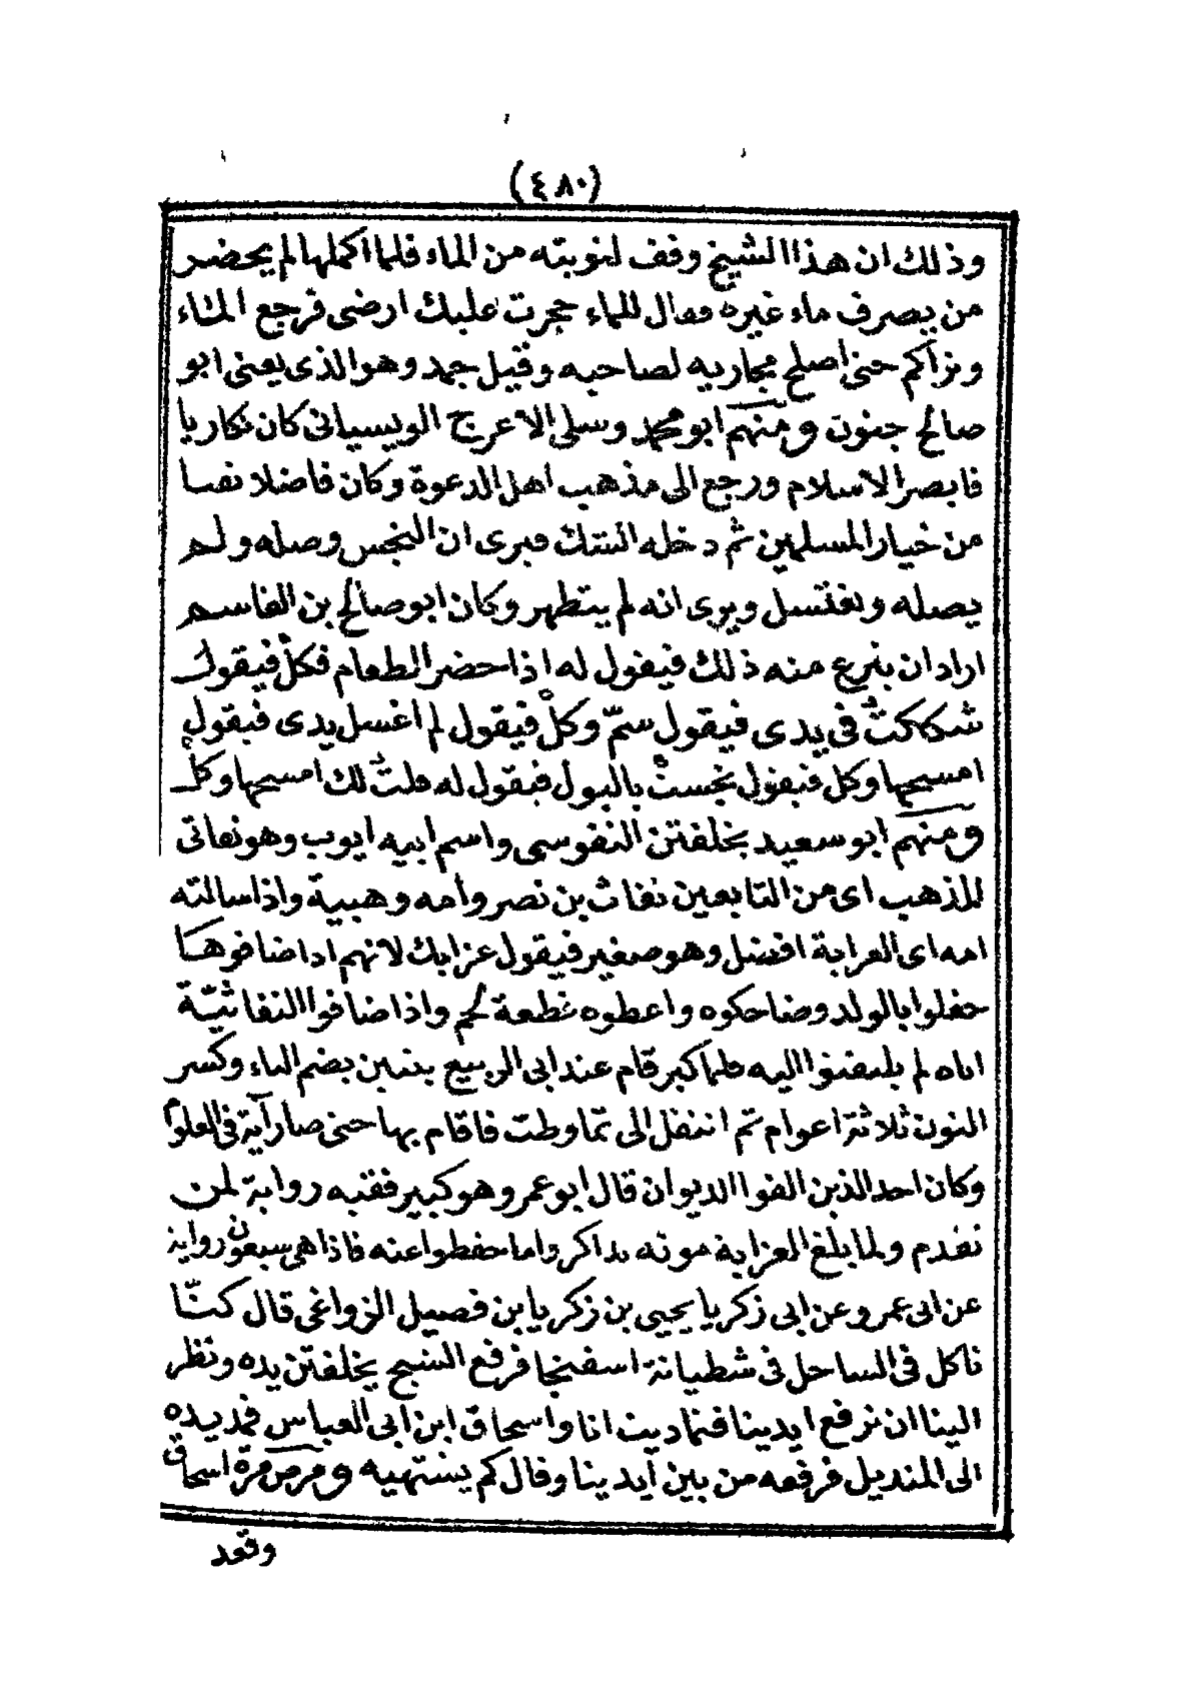 (٤٨٠)
وذلك ان هذا الشيخ وقف لنوبته من الماء فلما اكملها لم يحضر
من يصرف ماء غيره فقال للماء حجرت عليك ارضى فرجع الماء
وتراكم حتى اصلح مجاريه لصاحبه وقيل حمد وهو الذى يعنى ابو
صالح جنون ومنهم ابو محمد وسلى الاعرج الويسيانى كان نكاريا
فابصر الاسلام ورجع الى مذهب اهل الدعوة وكان فاضلا نفسا
من خيار المسلمين ثم دخله الشك فيرى ان النجس وصله ولم
يصله ويغتسل ويرى انه لم يتطهر وكان ابو صالح بن القاسم
اراد ان ينزع منه ذلك فيقول له اذا حضر الطعام فكل فيقول
شككت فى يدى فيقول سمّ وكلْ فيقول لم اغسل يدى فيقول
امسحها وكل فيقول نجست بالبول فيقول له قلت لك امسحها وكلْ
ومنهم ابو سعيد يخلفتن النفوسى واسم ابيه ايوب وهو نفاثى
المذهب اى من التابعين نفاث بن نصر وامه وهبية واذا سالته
امه اى العزابة افضل وهو صغير فيقول عزابك لانهم اذا ضافوها
حفلوا بالولد وضاحكوه واعطوه قطعة لحم واذا ضافوا النفاثيّة
اباه لم يلتفتوا اليه فلما كبر قام عند ابى الربيع بتنين بضم الباء وكسر
النون ثلاثة اعوام ثم انتقل الى تماوطت فاقام بها حتى صار آية فى العلوم
وكان احد الذين الفوا الديوان قال ابو عمرو هو كبير فقيه رواية لمن
تقدم ولما بلغ العزابة موته تذاكروا ما حفظوا عنه فاذا هى سبعون رواية
عن ابى عمرو وعن ابى زكريا يحيى بن زكريا بن فصيل الزواغى قال كنّا
ناكل فى الساحل فى شطيانة اسفنجا فرفع الشيخ يخلفتن يده ونظر
الينا ان نرفع ايدينا فتماديت انا واسحاق ابن ابى العباس فمد يده
الى المنديل فرفعه من بين أيدينا وقال كم يشتهيه ومرض مرة اسحاق
وقعد